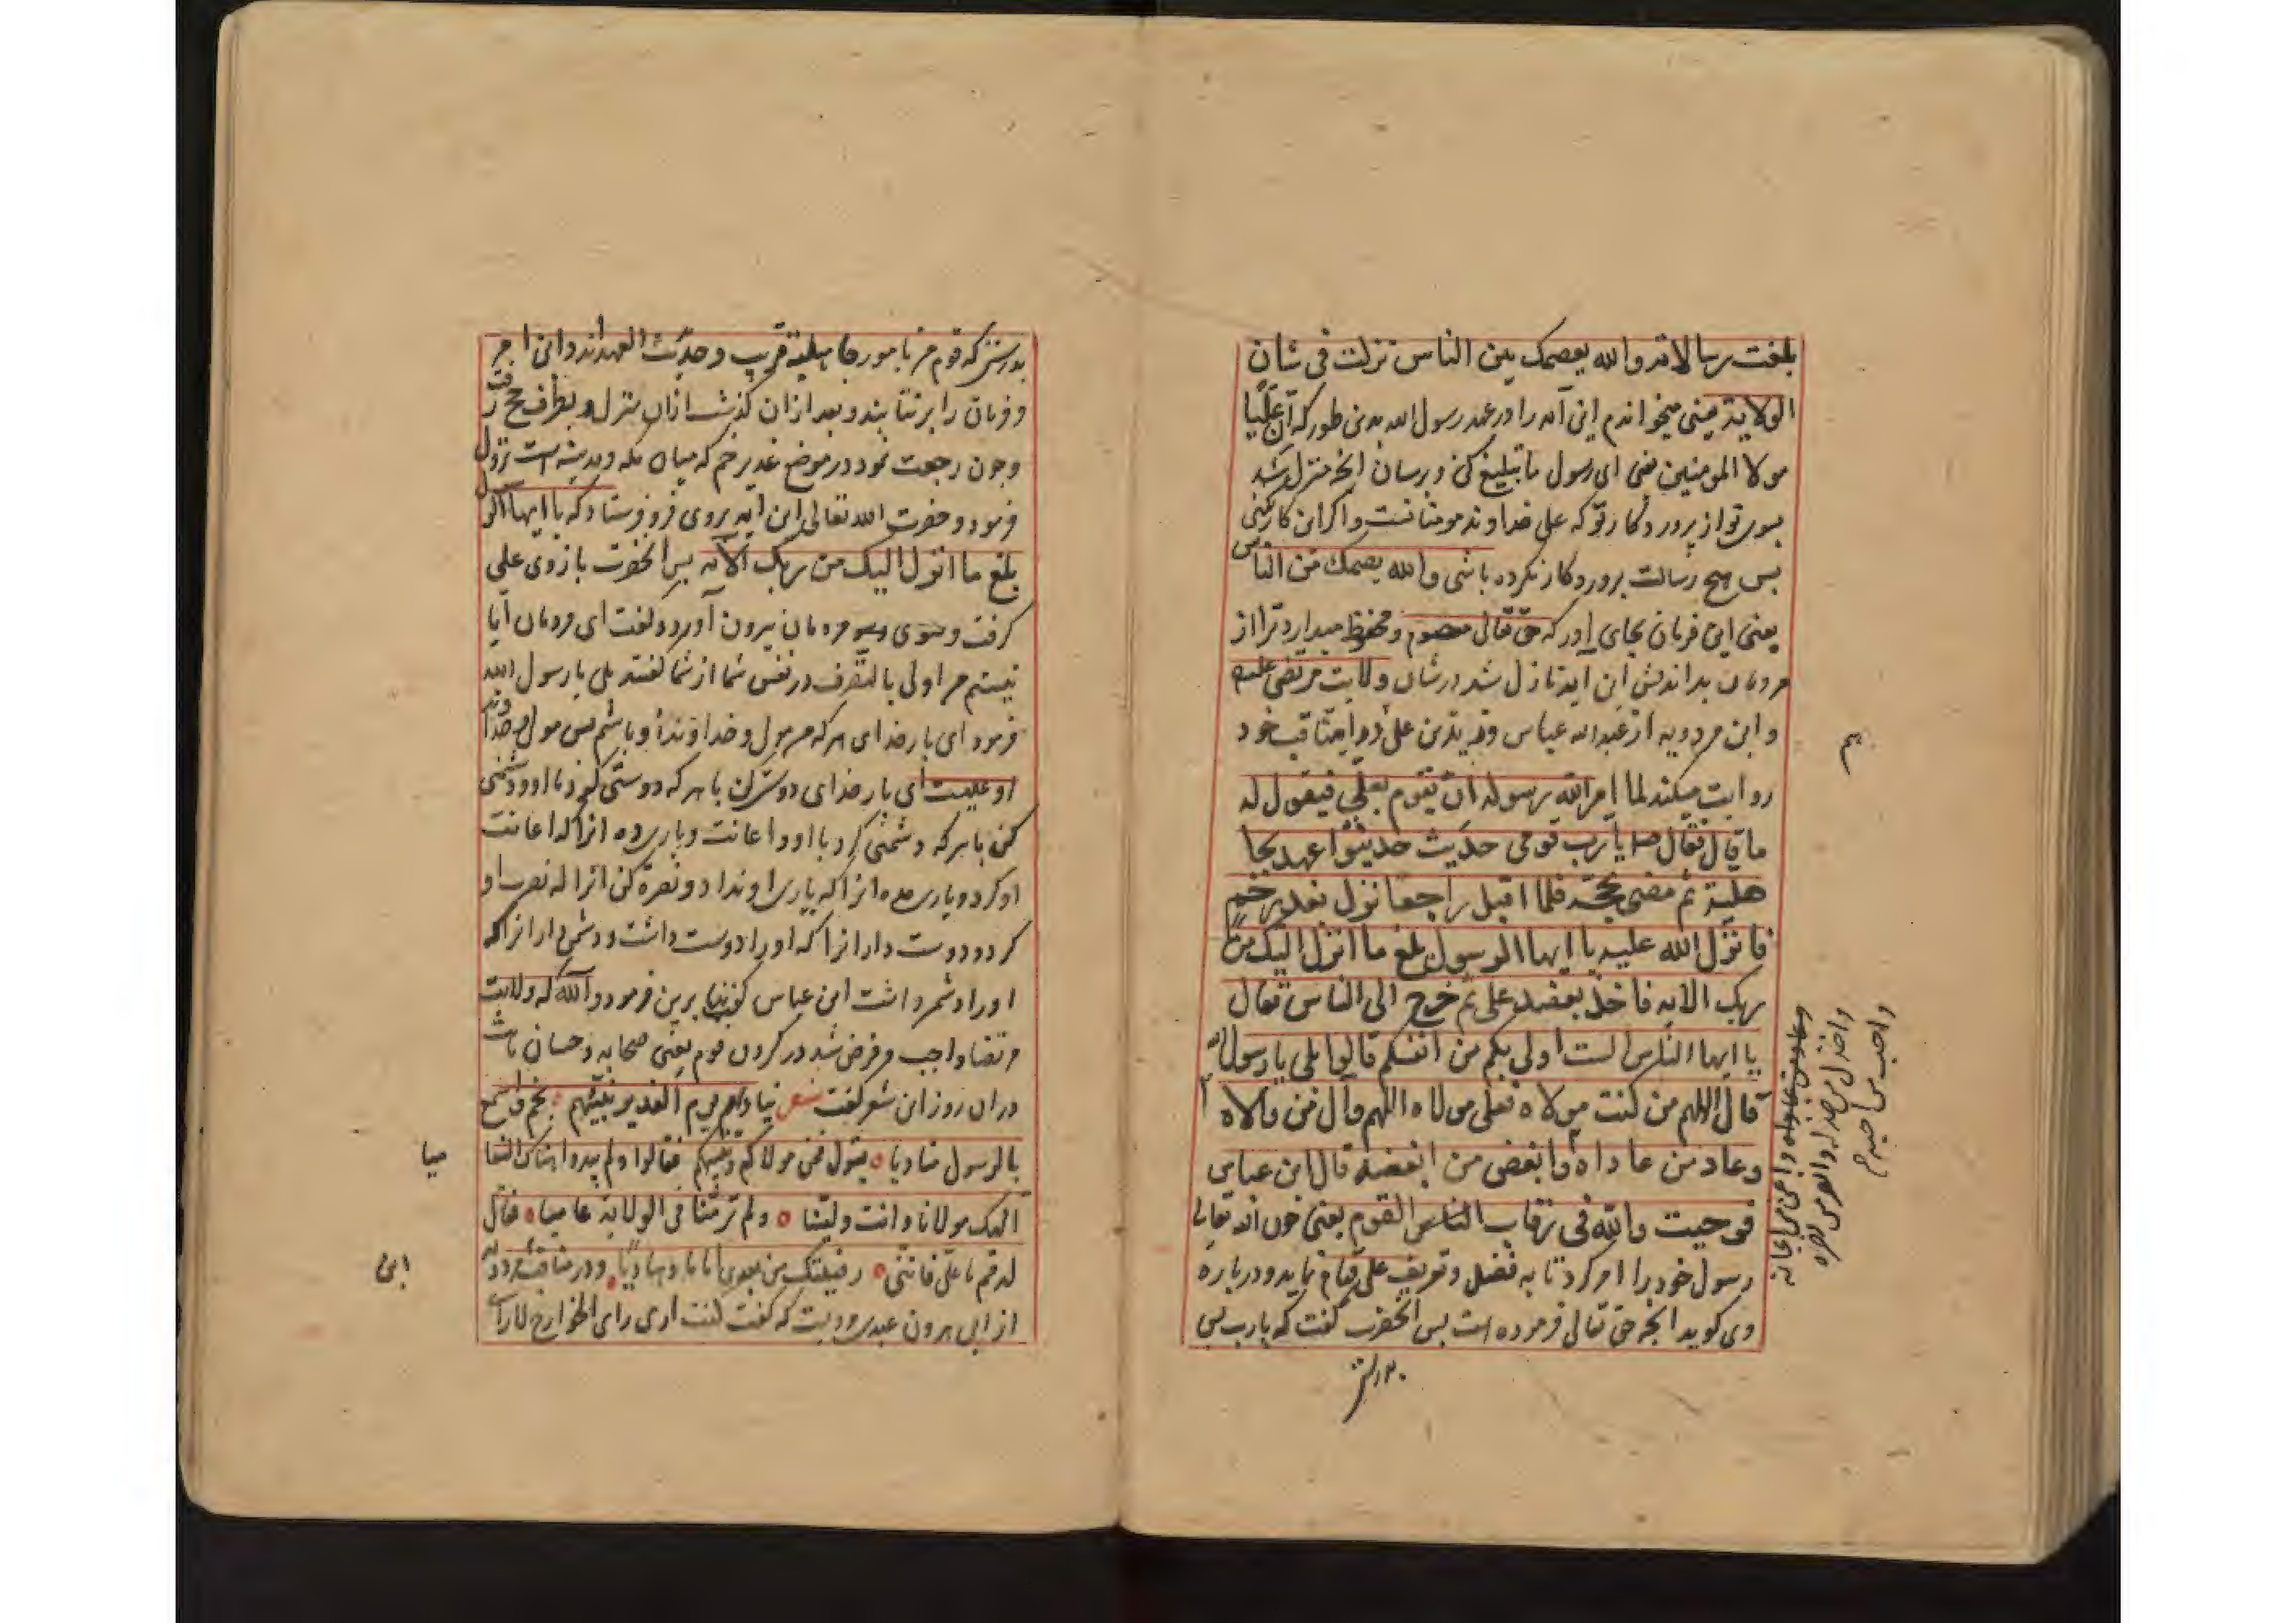 بلغت رسالاته والله يعصمك من الناس نزلت فی شان
الولاية یعنی میخواندم این آیه را در عهد رسول الله بدین طور که ان علیا
مولا المومنین یعنی ای رسول ما تبلیغ کن و برسان انچه منزل شد
بسوی تو از پروردگار تو که علی خداوند مومنانست و اگر این کار نکنی
پس هیچ رسالت پروردگار نکرده باشی والله يعصمك من الناس
یعنی این فرمان بجای آور که حق تعالی معصوم و محفوظ میدارد ترا از
مردمان بداندیش این آیه نازل شد در شان ولایت مرتضی علیه
و ابن مردویه از عبد الله عباس و زید بن علی در مناقب خود
روایت میکند لما امر الله رسوله ان يقوم بعلی فيقول له
ما قال فقال يا رب قومی حديث حديثوا عهد بجا
هلية ثم مضی بحجه فلما اقبل راجعا نزل بغدير خم
فانزل الله عليه يا ايها الرسول بلغ ما انزل اليك من
ربك الآيه فاخذ بعضد علی ثم خرج الی الناس فقال
يا ايها الناس الست اولی بكم من انفسكم قالوا بلی يا رسول الله
قال اللهم من كنت مولاه فعلی مولاه اللهم وال من والاه
وعاد من عاداه وابغض من ابغضه قال ابن عباس
فوجبت والله فی رقاب الناس القوم یعنی چون الله تعالی
رسول خود را امر کرد تا به فضل و تعریف علی قیام نماید و درباره
وی گوید انچه حق تعالی فرموده است پس انحضرت گفت که یارب
بدرستی
م
واخذل من خذله وانصر من نصره
واحب من احبه
بدرستی که قوم من بامور جاهلیة قریب و حدیث العهد اند و این امر
و فرمان را برنتابند و بعد ازان گذشت ازان منزل و بطرف حج رفت
و چون رجعت نمود در موضع غدیر خم که میان مکه و مدینه است نزول
فرمود و حضرت الله تعالی این آیه بروی فرو فرستاد که يا ايها الرسول
بلغ ما انزل اليك من ربك الآيه پس انحضرت بازوی علی
گرفت و بسوی مردمان بیرون آورد و گفت ای مردمان آیا
نیستم من اولی بالتصرف در نفس شما از شما گفتند بلی یا رسول الله
فرمود ای بار خدای هر که من مولی و خداوندۀ وی باشم پس مولی و خداوند
او علیست ای بار خدای دوستی کن با هر که دوستی کرد با او و دشمنی
کن با هر که دشمنی کرد با او و اعانت و یاری ده انرا که اعانت
او کرد و یاری مده انرا که یاری او نداد و نصرة کن انرا که نصرت او
کرد و دوست دار انرا که او را دوست داشت و دشمن دار انرا که
او را دشمن داشت ابن عباس گوید پیغمبر این فرمود والله که ولایت
مرتضا واجب و فرض شد در گردن قوم یعنی صحابه و حسان ثابت
دران روز این شعر گفت شعر يناديهم يوم الغدير نبيهم بخم واسمع
بالرسول مناديا يقول فمن مولاكم ونبيكم فقالوا ولم يبدوا هناك التعا
ميا
الهك مولانا وانت ولينا ولم تر منا فی الولاية عاصيا فقال
له قم يا علی فاننی رضيتك من بعدی اماما وهاديا و در مناقب مردویه
ابن
از ابی هرون عبدی مرویست که گفت كنت اری رای الخوارج لا رای